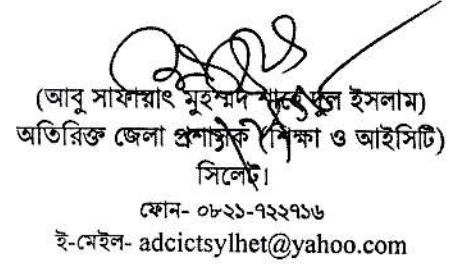 (আবু সাফায়াৎ মুহম্মদ শাহেদুল ইসলাম)
অতিরিক্ত জেলা প্রশাসক (শিক্ষা ও আইসিটি)
সিলেট।
ফোন- ০৮২১-৭২২৭১৬
ই-মেইল- adcictsylhet@yahoo.com